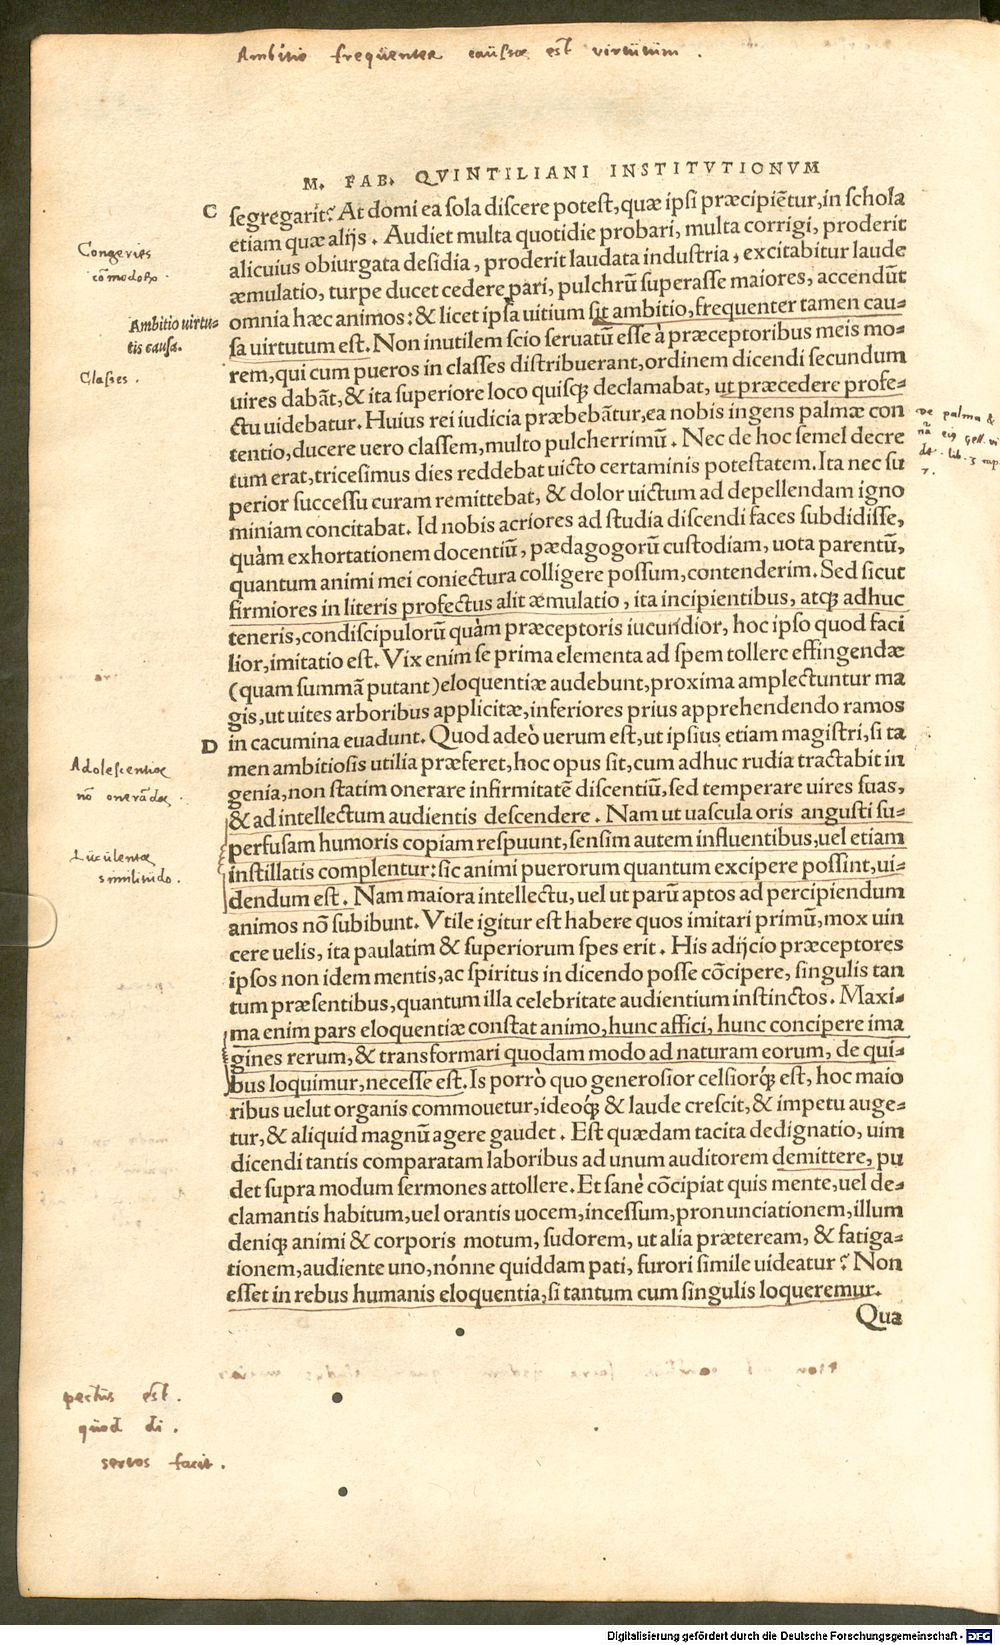 Ambitio freqüenter caüssa est virtütüm .
M. FAB. QVINTILIANI INSTITVTIONVM
C
segregarit? At domi ea sola discere potest, quæ ipsi præcipiẽtur, in schola
etiam quæ alijs. Audiet multa quotidie probari, multa corrigi, proderit
alicuius obiurgata desidia, proderit laudata industria, excitabitur laude
æmulatio, turpe ducet cedere pari, pulchrũ superasse maiores, accendũt
omnia hæc animos: & licet ipsa uitium sit ambitio, frequenter tamen cau-
sa uirtutum est. Non inutilem scio seruatũ esse à præceptoribus meis mo-
rem, qui cum pueros in classes distribuerant, ordinem dicendi secundum
uires dabãt, & ita superiore loco quisq; declamabat, ut præcedere profe-
ctu uidebatur. Huius rei iudicia præbebãtur, ea nobis ingens palmæ con
tentio, ducere uero classem, multo pulcherrimũ. Nec de hoc semel decre
tum erat, tricesimus dies reddebat uicto certaminis potestatem. Ita nec su
perior successu curam remittebat, & dolor uictum ad depellendam igno
miniam concitabat. Id nobis acriores ad studia discendi faces subdidisse,
quàm exhortationem docentiũ, pædagogorũ custodiam, uota parentũ,
quantum animi mei coniectura colligere possum, contenderim. Sed sicut
firmiores in literis profectus alit æmulatio, ita incipientibus, atq; adhuc
teneris, condiscipulorũ quàm præceptoris iucundior, hoc ipso quod faci
lior, imitatio est. Vix enim se prima elementa ad spem tollere effingendæ
(quam summã putant) eloquentiæ audebunt, proxima amplectuntur ma
gis, ut uites arboribus applicitæ, inferiores prius apprehendendo ramos
D
in cacumina euadunt. Quod adeò uerum est, ut ipsius etiam magistri, si ta
men ambitiosis utilia præferet, hoc opus sit, cum adhuc rudia tractabit in
genia, non statim onerare infirmitatẽ discentiũ, sed temperare uires suas,
& ad intellectum audientis descendere. Nam ut uascula oris angusti su-
perfusam humoris copiam respuunt, sensim autem influentibus, uel etiam
instillatis complentur: sic animi puerorum quantum excipere possint, ui-
dendum est. Nam maiora intellectu, uel ut parũ aptos ad percipiendum
animos nõ subibunt. Vtile igitur est habere quos imitari primũ, mox uin
cere uelis, ita paulatim & superiorum spes erit. His adijcio præceptores
ipsos non idem mentis, ac spiritus in dicendo posse cõcipere, singulis tan
tum præsentibus, quantum illa celebritate audientium instinctos. Maxi-
ma enim pars eloquentiæ constat animo, hunc affici, hunc concipere ima
gines rerum, & transformari quodam modo ad naturam eorum, de qui-
bus loquimur, necesse est. Is porrò quo generosior celsiorq́; est, hoc maio
ribus uelut organis commouetur, ideoq́; & laude crescit, & impetu auge-
tur, & aliquid magnũ agere gaudet. Est quædam tacita dedignatio, uim
dicendi tantis comparatam laboribus ad unum auditorem demittere, pu
det supra modum sermones attollere. Et sanè cõcipiat quis mente, uel de-
clamantis habitum, uel orantis uocem, incessum, pronunciationem, illum
deniq; animi & corporis motum, sudorem, ut alia præteream, & fatiga-
tionem, audiente uno, nónne quiddam pati, furori simile uideatur? Non
esset in rebus humanis eloquentia, si tantum cum singulis loqueremur.
Qua
Congeries
cõmodoꝝ.
Ambitio uirtu-
tis causa.
Classes .
De palma &
lib. 3 cap
7.
Adolescentiæ
nõ onerãdæ .
Lücülenta
similitüdo .
pectüs est .
qüod di
sertos facit .
Digitalisierung gefördert durch die Deutsche Forschungsgemeinschaft - DFG